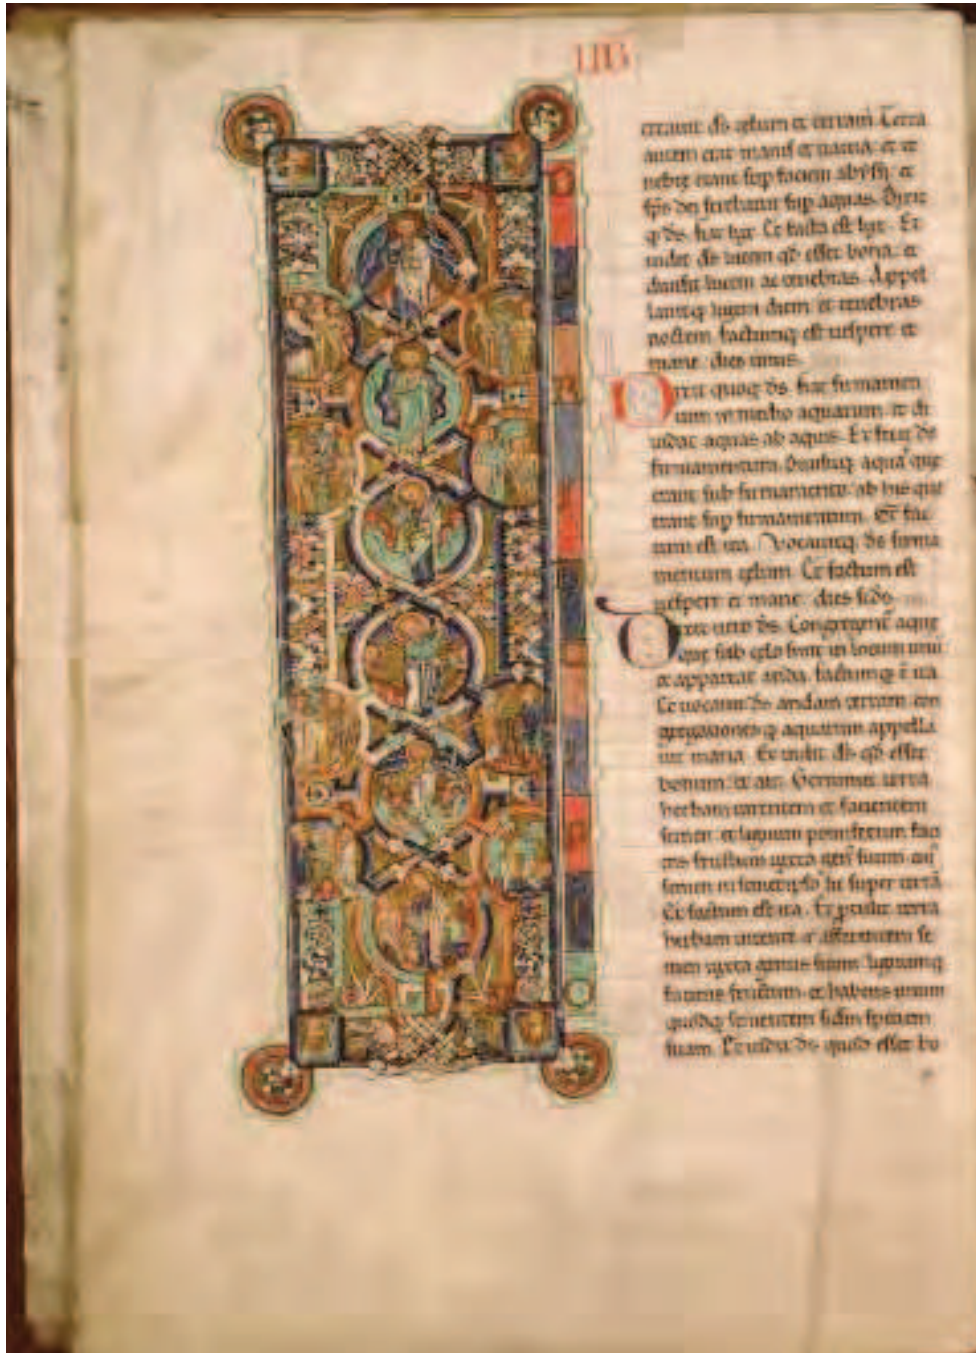 LIB
creauit ds celum et terram. Terra
autem erat inanis et uacua. et te
nebre erant sup faciem abyssi. et
sps dei ferebatur sup aquas. Dixit
q ds. fiat lux. Et facta est lux. Et
uidit ds lucem qd esset bona. et
diuisit lucem ac tenebras. Appel
lauitq lucem diem et tenebras
noctem. factumq est uespere et
mane dies unus.
Dixit quoq ds. fiat firmamen
tum in medio aquarum. et di
uidat aquas ab aquis. Et fecit ds
firmamentum. diuisitq aquas que
erant sub firmamento. ab his que
erant sup firmamentum. Et fac
tum est ita. Vocauitq ds firma
mentum celum. Et factum est
uespere et mane. dies scds.
Dixit uero ds. Congregent aque
que sub celo sunt in locum unu
et appareat arida. factumq e ita.
Et uocauit ds aridam terram. con
gregationesq aquarum appella
uit maria. Et uidit ds qd esset
bonum. et ait. Germinet terra
herbam uirentem et facientem
semen. et lignum pomiferum faci
ens fructum iuxta gen suum. cui
semen in semetipso sit super terra
Et factum est ita. Et protulit terra
herbam uirente et afferentem se
men iuxta genus suum. lignumq
faciens fructum. et habens unum
quodq sementem scdm speciem
suam. Et uidit ds quod esset bo